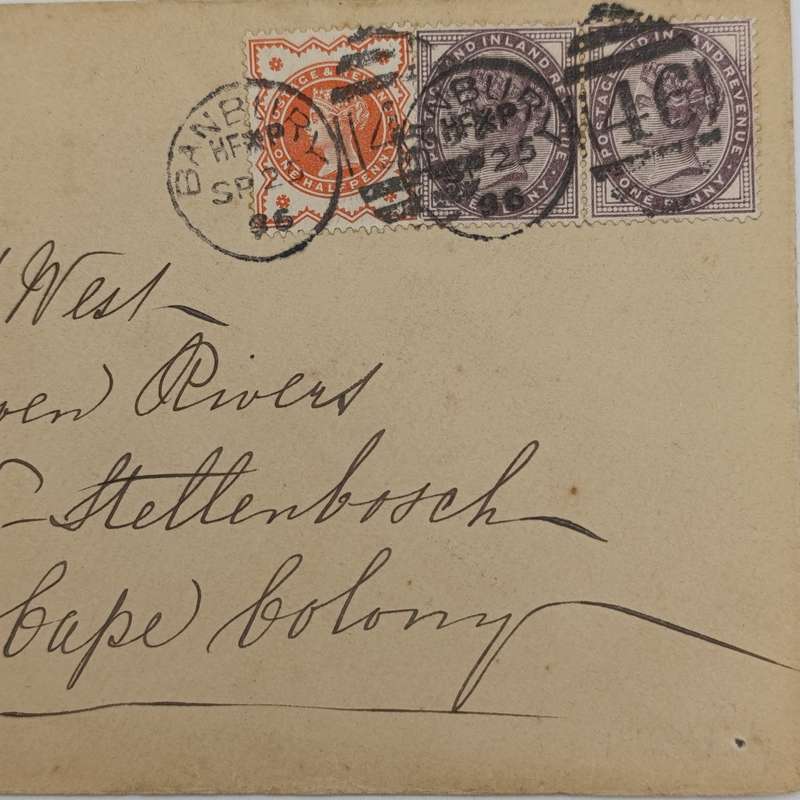 POSTAGE & REVENUE ONE HALFPENNY
POSTAGE AND INLAND REVENUE ONE PENNY
POSTAGE AND INLAND REVENUE ONE PENNY
BANBURY
HF*P
SP 25
96
BANBURY
HF*P
SP 25
96
46
West
Rivers
Stellenbosch
Cape Colony